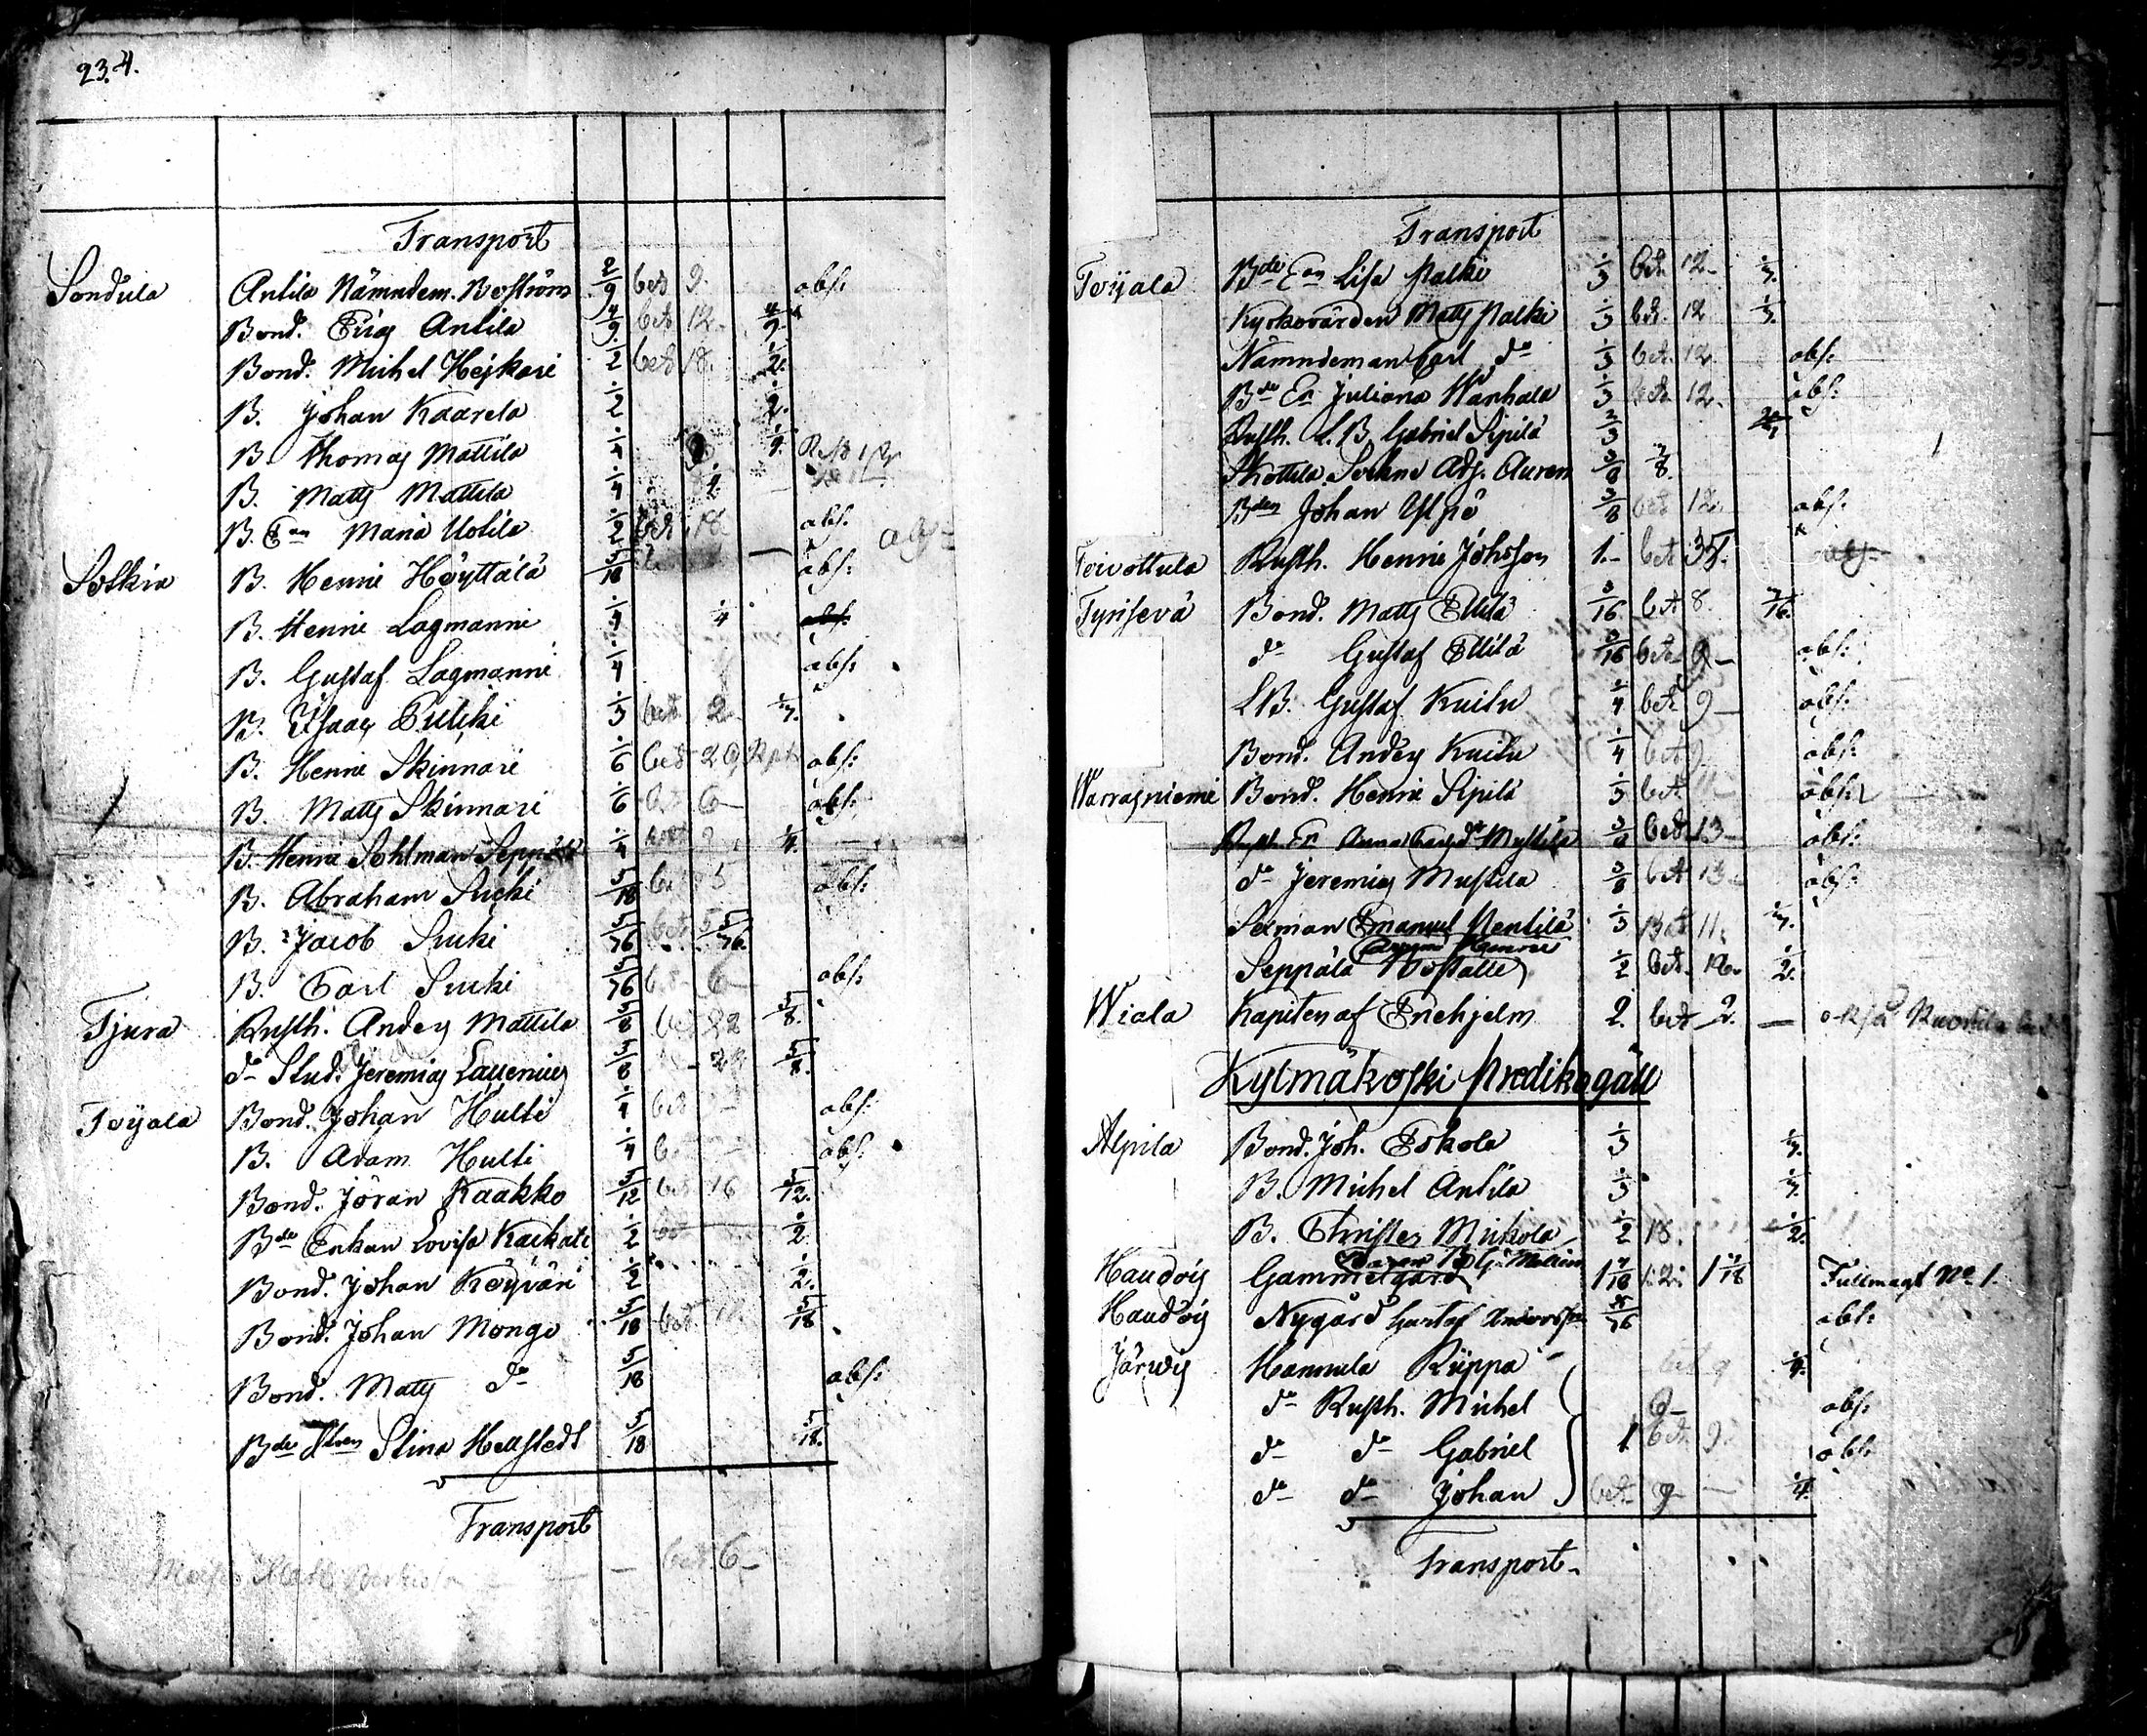 234.
Transport
Sondula Antila Nämndem. Boström 2/9 bet 9. abs:
Bond. Eric Antila 4/9 bet 12. 4/9.
Bond. Michel Hejkari 1/2 bet 18. 1/2.
B. Johan Kaarela 1/2 1/2.
B. Thomas Mattila 1/4
B. Matts Mattila 1/4
B. Ean Maria Uotila 1/2 bet 18 abs:
Sotkia B. Henric Höyttälä 5/18 abs:
B. Henric Lagmanni 1/4 1/4 abs:
B. Gustaf Lagmanni 1/4 abs:
B. Isaac 1/3 bet 2 1/3.
B. Henric Skinnari 1/6 bet abs:
B. Matts Skinnari 1/6 6 abs:
B. Henric Sohlman Seppälä 1/4 1/4.
B. Abraham Sucki 5/18 bet 5 abs:
B. Jacob Sucki 5/76 bet 5/76.
B. Carl Sucki 5/76 bet 6 abs:
Tjura Rusth. Anders Mattila 5/8 bet 22 5/8.
do Stud. Jeremias Laurenius 5/8 5/8.
Toijala Bond. Johan Hulti 1/4 bet abs:
B. Adam Hulti 1/4 abs:
Bond. Jöran Kaakko 5/12 bet 16 5/12.
Bde Enkan Lovisa 1/2 1/2
Bond. Johan Köyväri 1/2 1/2.
Bond. Johan Mongo 5/18 bet 5/18
Bond. Matts do 5/18 abs:
Bde Stina Hellstedt 5/18 5/18.
Transport
bet 6
Transport
Toijala Bde Ean Lisa Palki 1/3 bet 12 1/3.
Kyrkovärden Matts Palki 1/3 bet. 12 1/3.
Nämndeman Carl do 1/3 bet. 12. abs:
Bde En Juliana Wanhala 1/3 bet 12. abs:
Rusth. L. B. Gabriel Sipilä 2/3
Skottila Sockne Adj. Auren 3/8
Bden Johan 3/8 bet 12. abs:
Toivottula Rusth. Henric Johsson 1. bet 35.
Tyrisevä Bond. Matts Ellilä 3/16 bet 8. 3/16.
do Gustaf Ellilä 3/16 bet 9 abs:
LB. Gustaf Kuilu 1/4 bet 9 abs:
Bond. Anders Kuilu 1/4 bet 9 abs:
Warrasniemi Bond. Henric Sipilä 1/3 bet 11 abs:
Rusth En Anna Mustila 3/8 bet 13 abs:
do Jeremias Mustila 3/8 bet 13 abs:
Selman Emanuel Uentilä 1/3 Bet 11. 1/3.
Seppälä 1/2 bet. 1/2.
Wiala Kapiten af Enehjelm 2. bet 2.
Kylmäkoski Predikogäll
Alpila Bond. Joh. Eskola 1/3 1/3.
B. Michel Antila 1/3 1/3.
B. Christer Mickola 1/2 18. 1/2.
Haudois Gammelgård Fullmagt No 1.
Haudois Nygård Gustaf Andersson abs:
Järwis Hannula Rijppa bet 9 1/4.
do Rusth. Michel 9 abs:
do do Gabriel 1 bet 9. abs:
do do Johan bet 9 1/4.
Transport